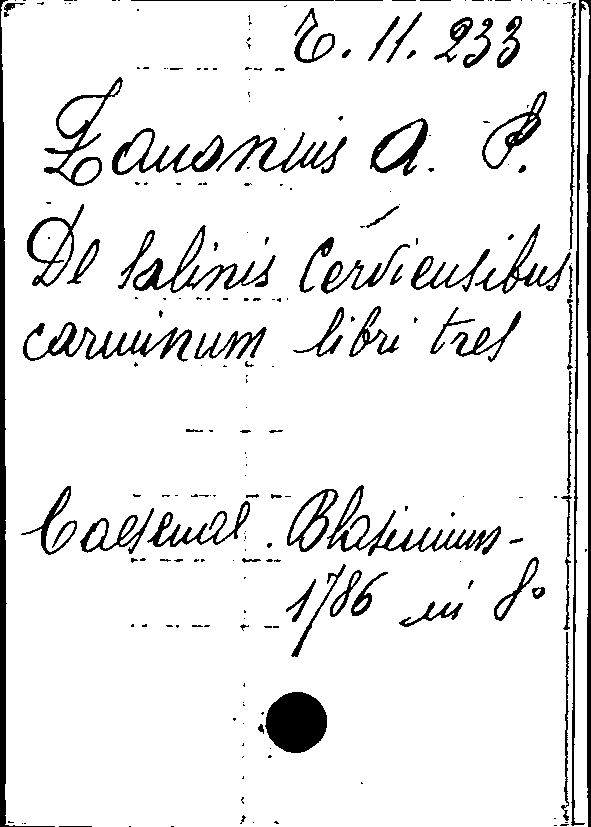 T. 11. 233
Zanonius A. P.
De Salinis Cerviensibus
carminum libri tres
Caesenae. Blasinium-
1786 in 8°